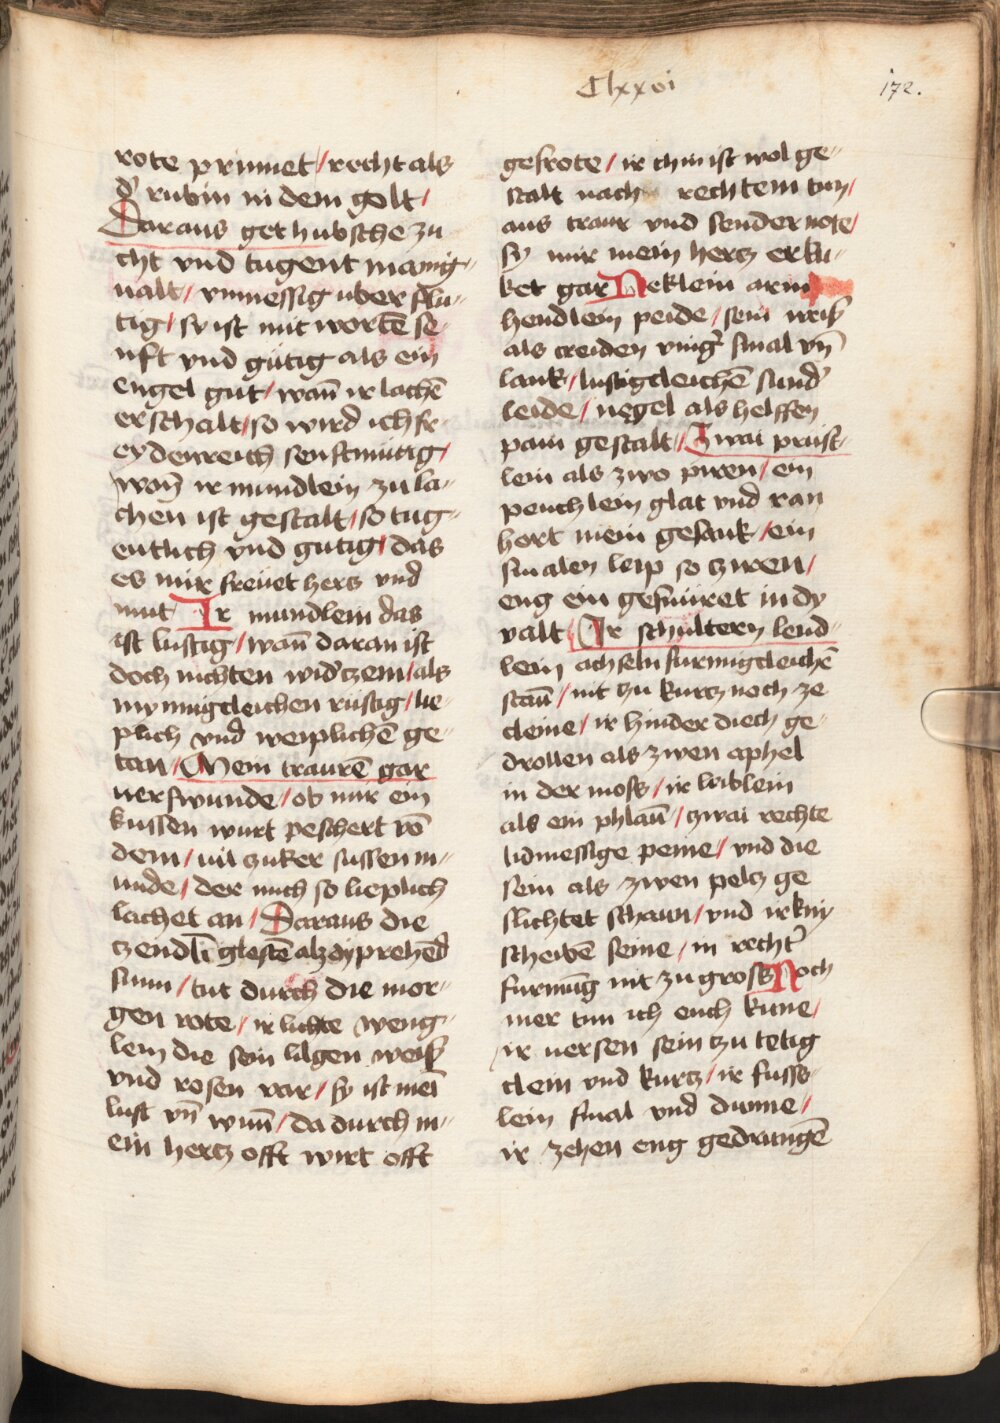 Clxxvi
172.
rote prinnet / recht als
d' rubin in dem golt /
Daraus get hubsche zu
cht vnd tugent manig-
ualt / vnmessig uber flü-
tig / sy ist mit wortē se-
nft vnd gütig als ein
engel gut / wan̄ ir lachē
erschalt / so wird ich fr-
eydenreich senftmütig /
wan̄ ir mundlein zu la-
chen ist gestalt / so tug-
entlich vnd gutig / das
es mir freüet hercz vnd
mut Ir mundlein das
ist lustig / wan̄ daran ist
doch nichten wid'czem / als
mynnigcleichen rüstig / lie-
plich vnd weiplichē ge-
tan / Mein traurē gar
uerswunde / ob mir ein
kussen wurt peschert vō
dem / uil czuker sussen m-
unde / der mich so lieplich
lachet an / Daraus die
czendlī glestē alz dy prehēd
sunn / tut durch die mor-
gen rote / ir lichte weng-
lein die sein lilgen weiß
vnd rosen var / sy ist mei
lust vn̄ wun̄ / da durch m-
ein hercz offt wirt offt
gefrote / ir chin ist wol ge-
stalt nach rechtem tun /
aus traur vnd sender note /
sy mir mein hercz erku-
ket gar Neklein arm
hendlein peide / sein weiß
als creiden ving' smal vn̄
lank / lustigcleichē sund'
leide / negel als helffen
pain gestalt / Zwai prust-
lein als zwo piren / ein
peuchlein glat vnd ran
hort mein gesank / ein
smalen leip so czwen /
eng ein gesmüret in dy
valt / Ir schultern lend-
lein achseln furmigcleichē
stan̄ / nit czu kurcz noch ze
cleine / ir hinder diech ge-
drollen als zwen aphel
in der moss / ir leiblein
als ein phlan̄ / zwai rechte
lidmessige peine / vnd die
sein als zwen pelcz ge
slichtet schaun / vnd ir kny
scheibē seine / in recht'
furmūg nit zu gross Noch
mer tun ich euch kune /
ir uersen sein czu tetig
clein vnd kurcz / ir fusse-
lein smal vnd dunne /
ir zehen eng gedrungē